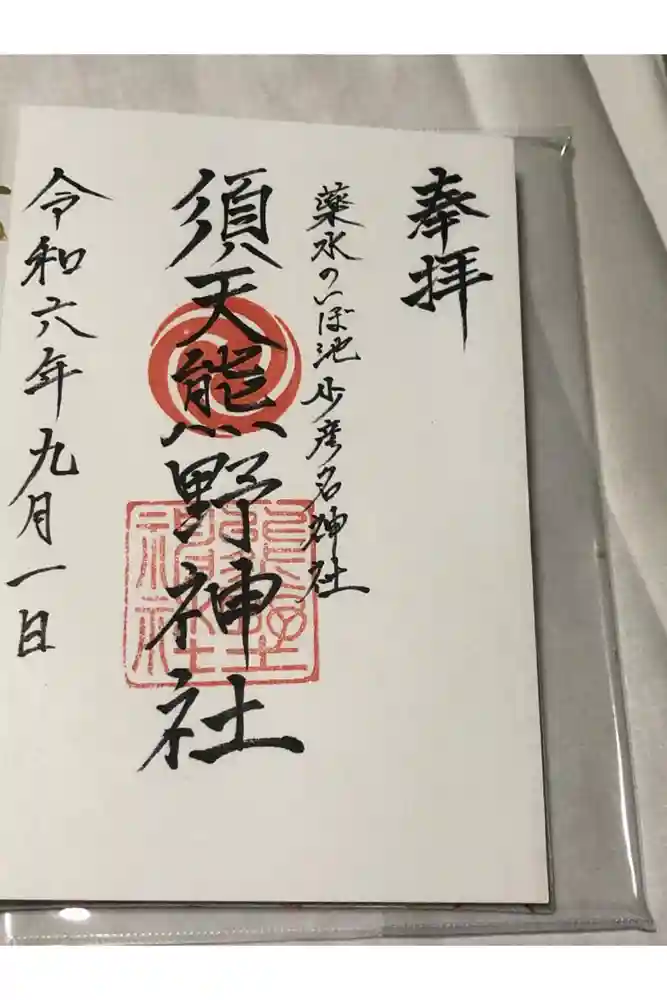 奉拝
薬水のいぼ池少彦名神社
須天熊野神社
熊野神社
令和六年九月一日